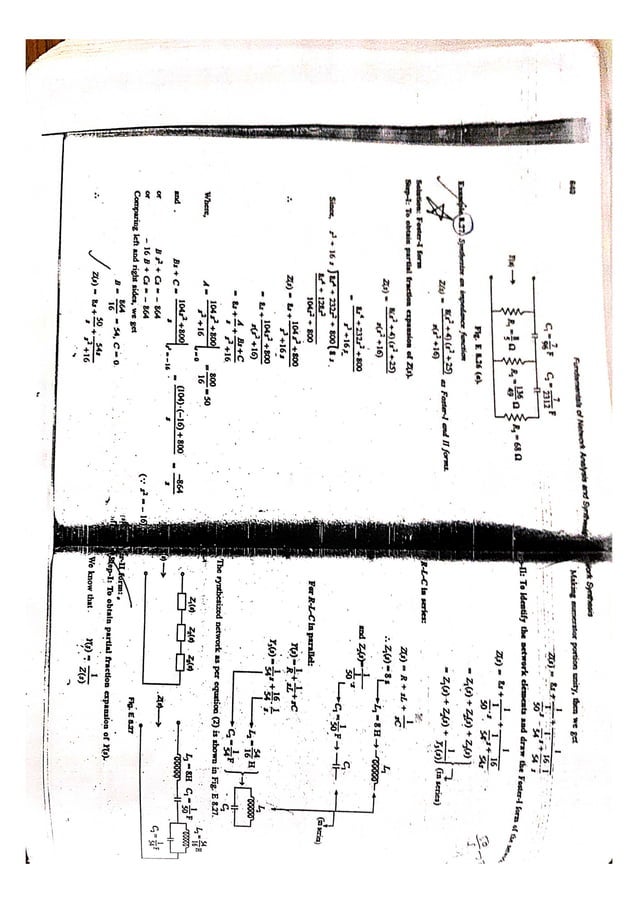 640
Fundamentals of Network Analysis and Synthesis
C₁ = 7/96 F C₂ = 7/2312 F
Y(s) →
R₁ = 8/5 Ω R₂ = 136/49 Ω R₃ = 68 Ω
Fig. E 8.26 (e).
Example 8.27. Synthesize an impedance function
Z(s) = 8(s²+4)(s²+25) / s(s²+16) as Foster-I and II forms.
Solution: Foster-I form
Step-I: To obtain partial fraction expansion of Z(s).
Z(s) = 8(s²+4)(s²+25) / s(s²+16)
= 8s⁴+232s²+800 / s³+16s
Since, s³ + 16 s ) 8s⁴ + 232s² + 800 ( 8 s
8s⁴ + 128s²
104s² + 800
∴ Z(s) = 8s + 104 s²+800 / s³+16 s
= 8s + 104s²+800 / s(s²+16)
= 8s + A/s + Bs+C / s²+16
Where, A = 104 s²+800 / s²+16 |s=0 = 800/16 = 50
and Bs + C = 104s²+800 / s |s²=-16 = (104)·(-16)+800 / s = -864 / s
or B s² + Cs = - 864 (∵ s² = - 16)
or - 16 B + Cs = - 864
Comparing left and right sides, we get
B = 864/16 = 54, C = 0
∴ Z(s) = 8s + 50/s + 54s / s²+16
Network Synthesis
Making numerator portion unity, then we get
Z(s) = 8s + 1 / (1/50 s) + 1 / (1/54 s + 16/54 s)
p-II: To identify the network elements and draw the Foster-I form of the
Z(s) = 8s + 1 / (1/50 s) + 1 / (1/54 s + 16/54s)
= Z₁(s) + Z₂(s) + Z₃(s)
= Z₁(s) + Z₂(s) + 1/Y₃(s) (in series)
R-L-C in series:
Z(s) = R + sL + 1/sC
∴ Z₁(s) = 8 s → L₁ = 8 H → L₁
and Z₂(s) = 1 / (1/50 s) → C₁ = 1/50 F → C₁
(in series)
For R-L-C in parallel:
Y(s) = 1/R + 1/sL + sC
Y₃(s) = 1/54 s + 16/54 · 1/s
L₂ = 54/16 H
C₂ = 1/54 F
L₂
C₂
The synthesized network as per equation (2) is shown in Fig. E 8.27.
Z₁(s) Z₂(s) Z₃(s)
Z(s) →
L₁ = 8H C₁ = 1/50 F L₂ = 54/16 H
C₂ = 1/54 F
Fig. E 8.27
er-II form:
Step-I: To obtain partial fraction expansion of Y(s).
We know that Y(s) = 1/Z(s)